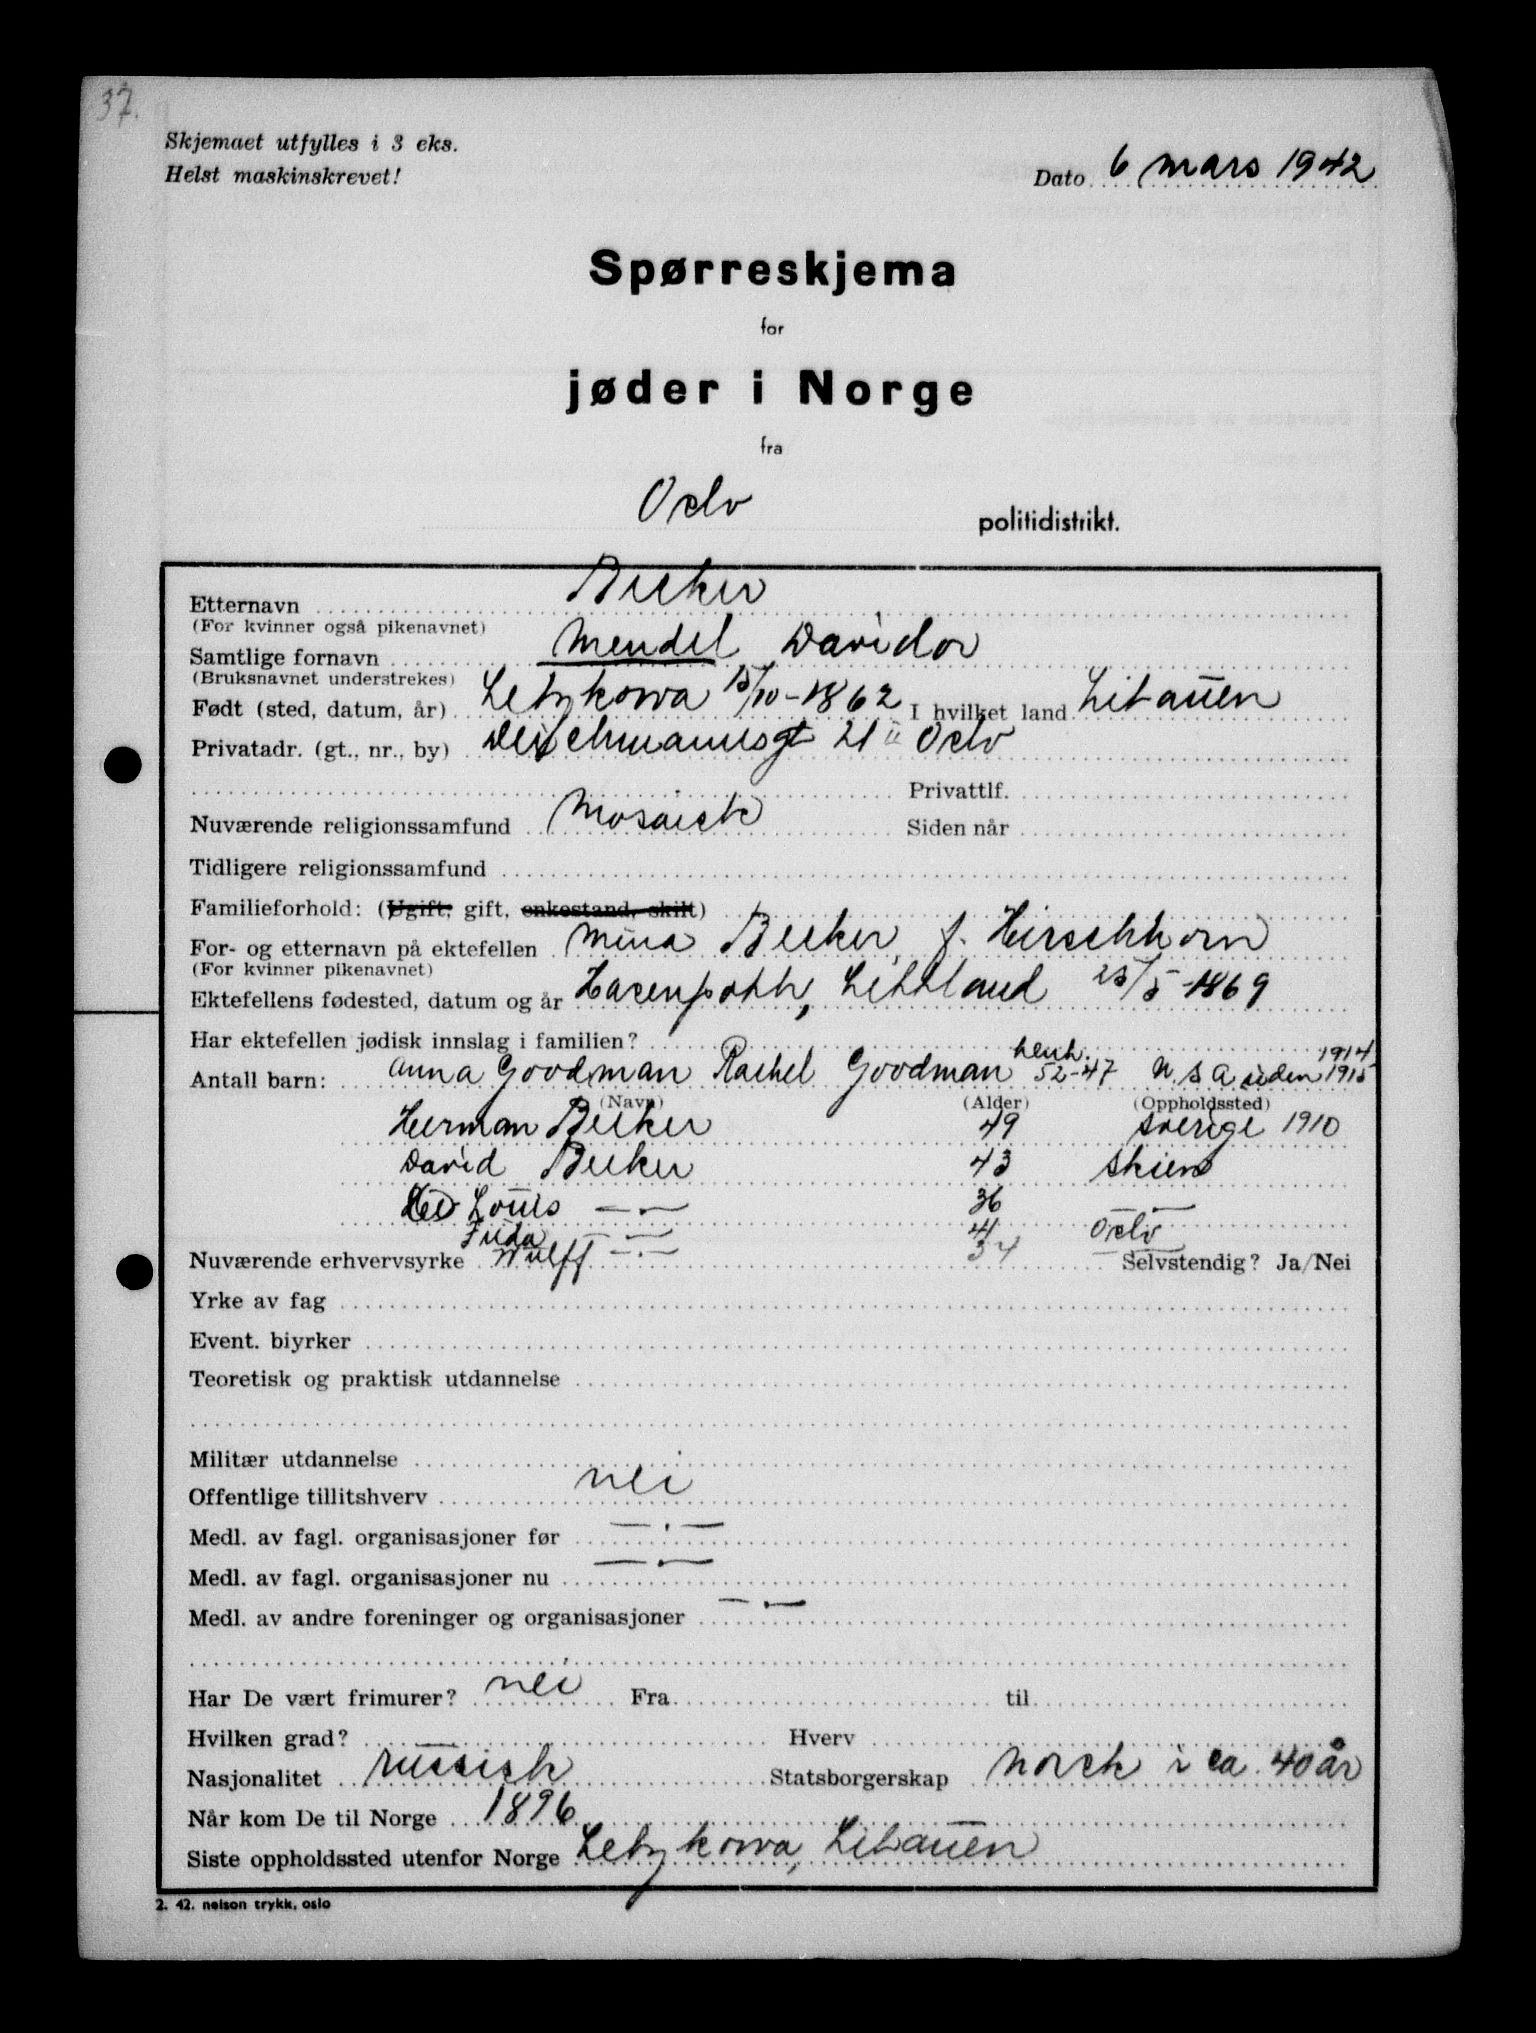 37.
Skjemaet utfylles i 3 eks.
Helst maskinskrevet!
Dato 6 mars 1942
Spørreskjema
for
jøder i Norge
fra
Oslo politidistrikt.
Etternavn Becker
(For kvinner også pikenavnet)
Samtlige fornavn Mendel Davidov
(Bruksnavnet understrekes)
Født (sted, datum, år) 15/10-1862 I hvilket land Litauen
Privatadr. (gt., nr., by) Deichmannsgt 21 II Oslo
Privattlf.
Nuværende religionssamfund Mosaisk Siden når
Tidligere religionssamfund
Familieforhold: (Ugift, gift, enkestand, skilt)
For- og etternavn på ektefellen Mina Becker, f. Hirschhorn
(For kvinner pikenavnet)
Ektefellens fødested, datum og år Hasenpoth, Lettland 25/5-1869
Har ektefellen jødisk innslag i familien?
Antall barn: Anna Goodman Rachel Goodman henh. 52-47 U.S.A siden 1914 1915
(Navn) (Alder) (Oppholdssted)
Herman Becker 49 Sverige 1910
David Becker 43 Skien
Louis —.— 36 —
Frida —.— 41 Oslo
Nuværende erhvervsyrke Wulff —.— 34 — Selvstendig? Ja/Nei
Yrke av fag
Event. biyrker
Teoretisk og praktisk utdannelse
Militær utdannelse
Offentlige tillitshverv nei
Medl. av fagl. organisasjoner før —.—
Medl. av fagl. organisasjoner nu —.—
Medl. av andre foreninger og organisasjoner —.—
Har De vært frimurer? nei Fra til
Hvilken grad? Hverv
Nasjonalitet russisk Statsborgerskap Norsk i ca. 40 år
Når kom De til Norge 1896
Siste oppholdssted utenfor Norge Litauen
2. 42. nelson trykk, oslo